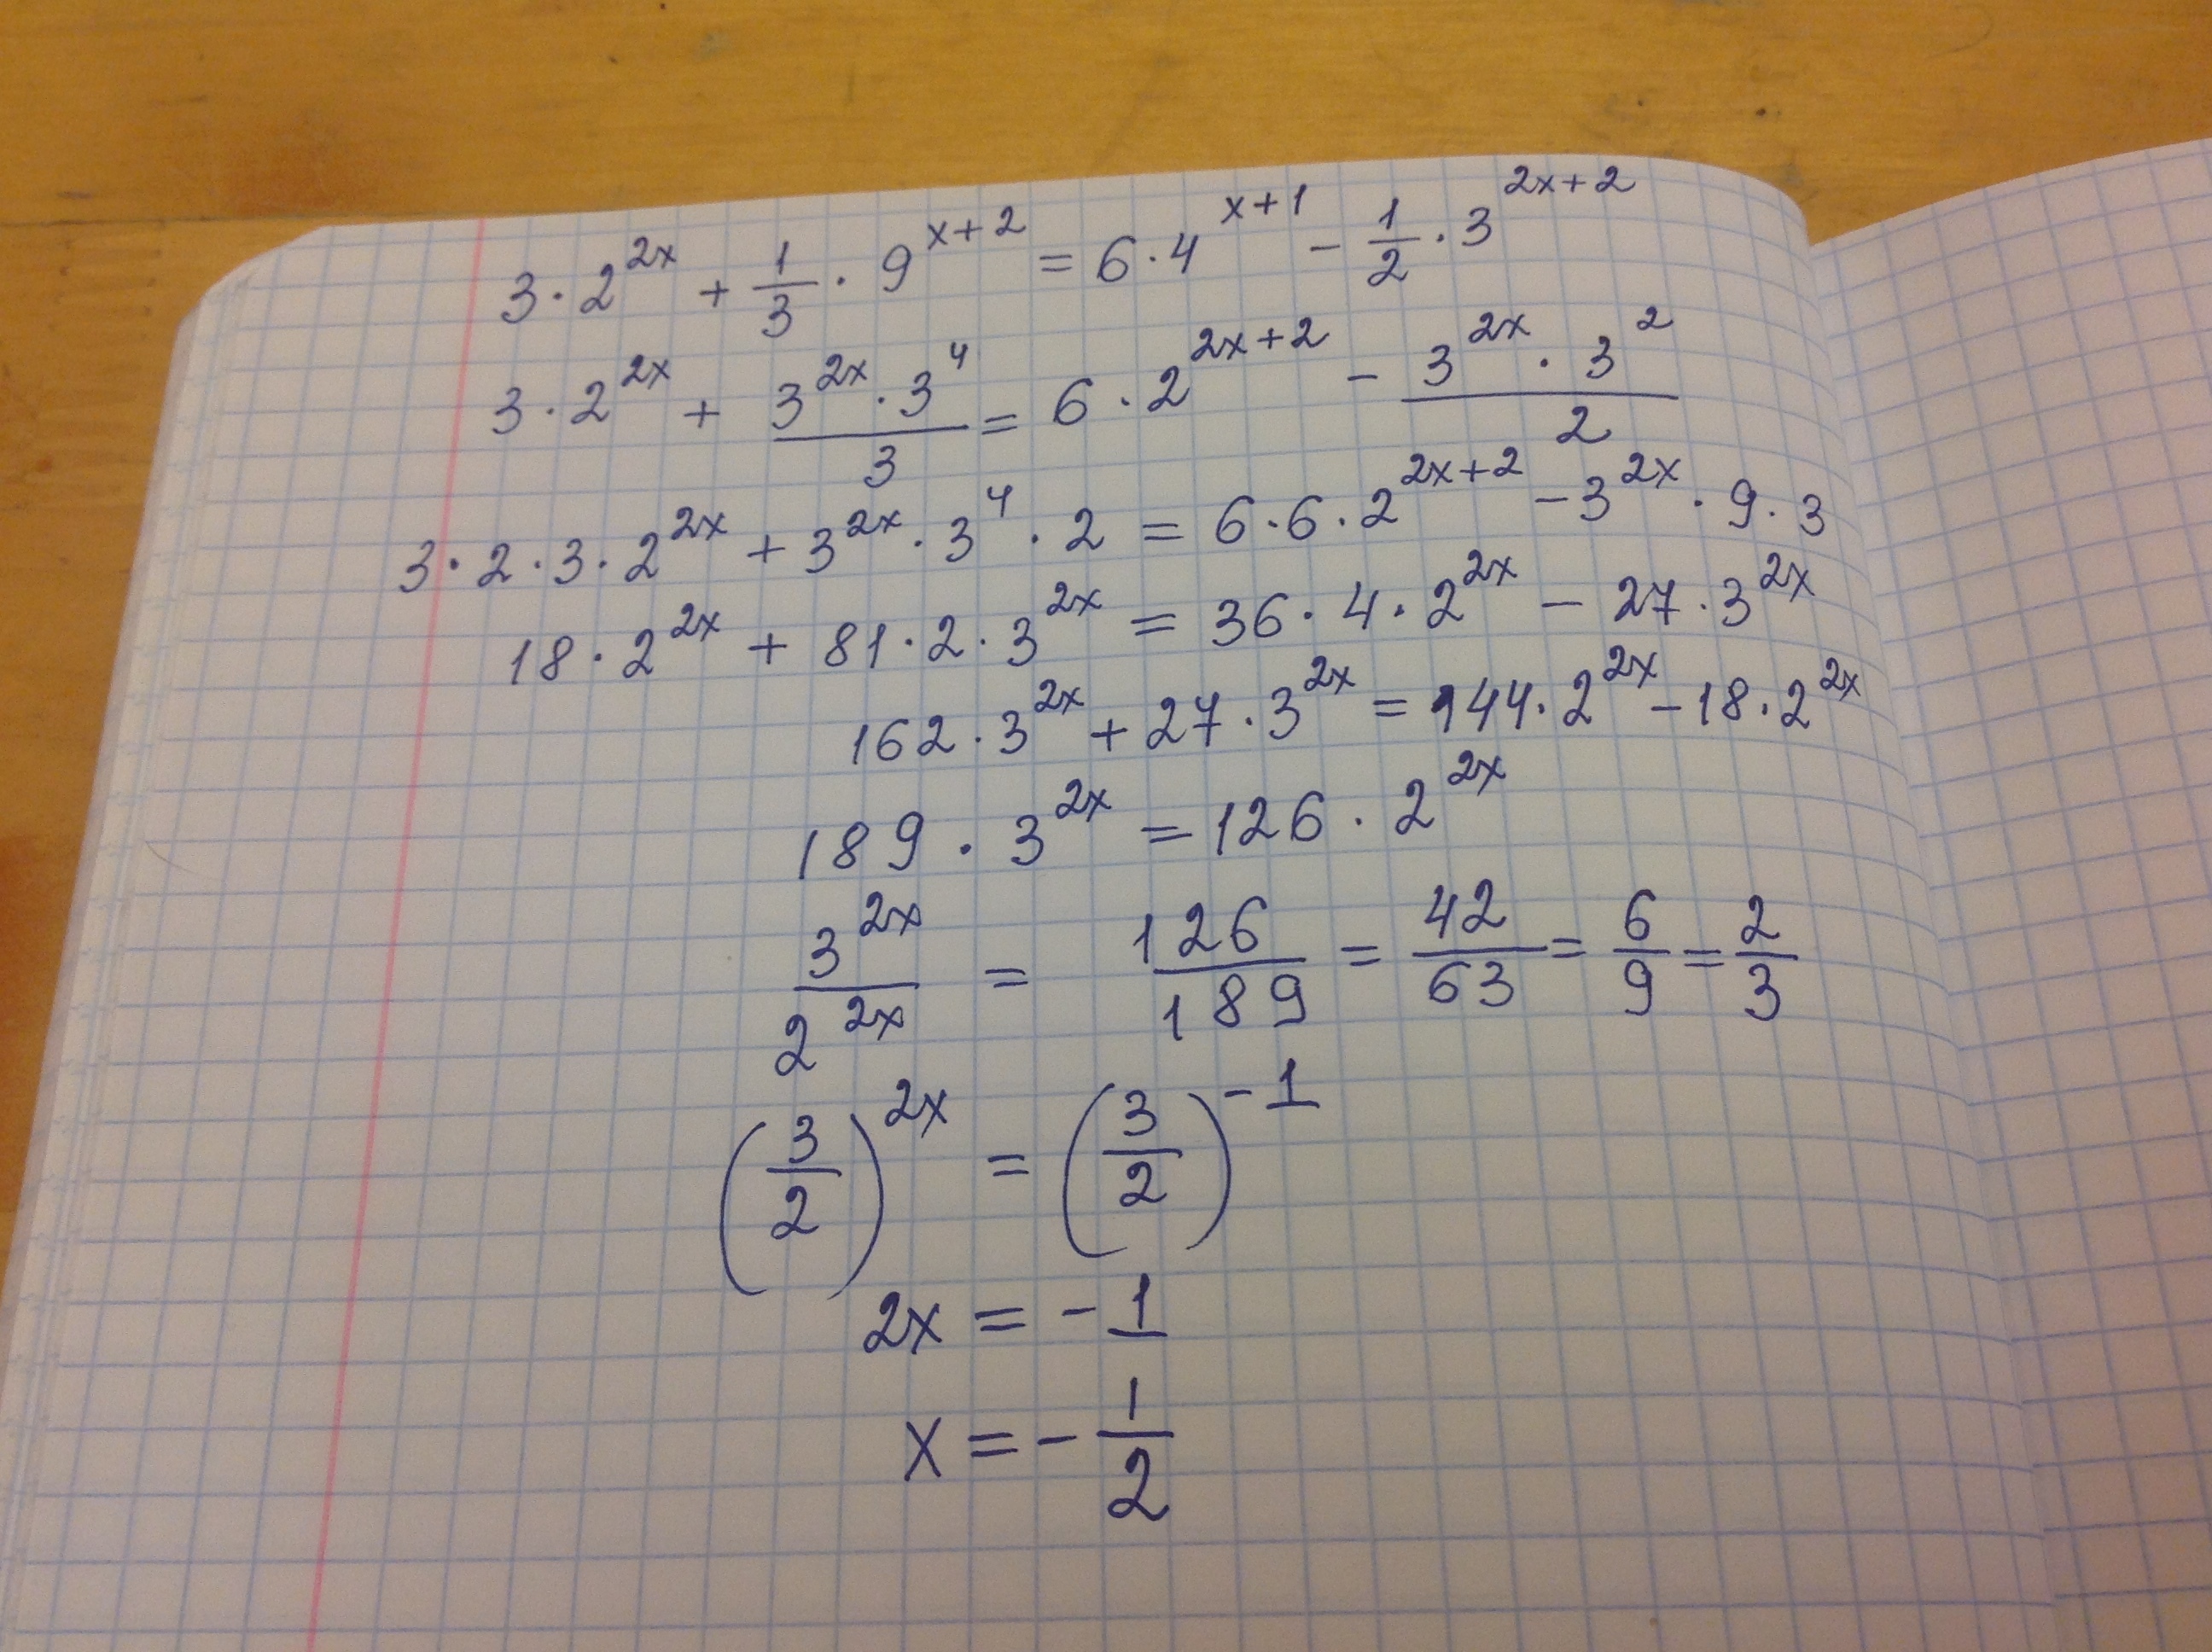 3·2^{2x} + \frac{1}{3}·9^{x+2} = 6·4^{x+1} - \frac{1}{2}·3^{2x+2}
3·2^{2x} + \frac{3^{2x}·3^4}{3} = 6·2^{2x+2} - \frac{3^{2x}·3^2}{2}
3·2·3·2^{2x} + 3^{2x}·3^4·2 = 6·6·2^{2x+2} - 3^{2x}·9·3
18·2^{2x} + 81·2·3^{2x} = 36·4·2^{2x} - 27·3^{2x}
162·3^{2x} + 27·3^{2x} = 144·2^{2x} - 18·2^{2x}
189·3^{2x} = 126·2^{2x}
\frac{3^{2x}}{2^{2x}} = \frac{126}{189} = \frac{42}{63} = \frac{6}{9} = \frac{2}{3}
(\frac{3}{2})^{2x} = (\frac{3}{2})^{-1}
2x = -1
x = -\frac{1}{2}